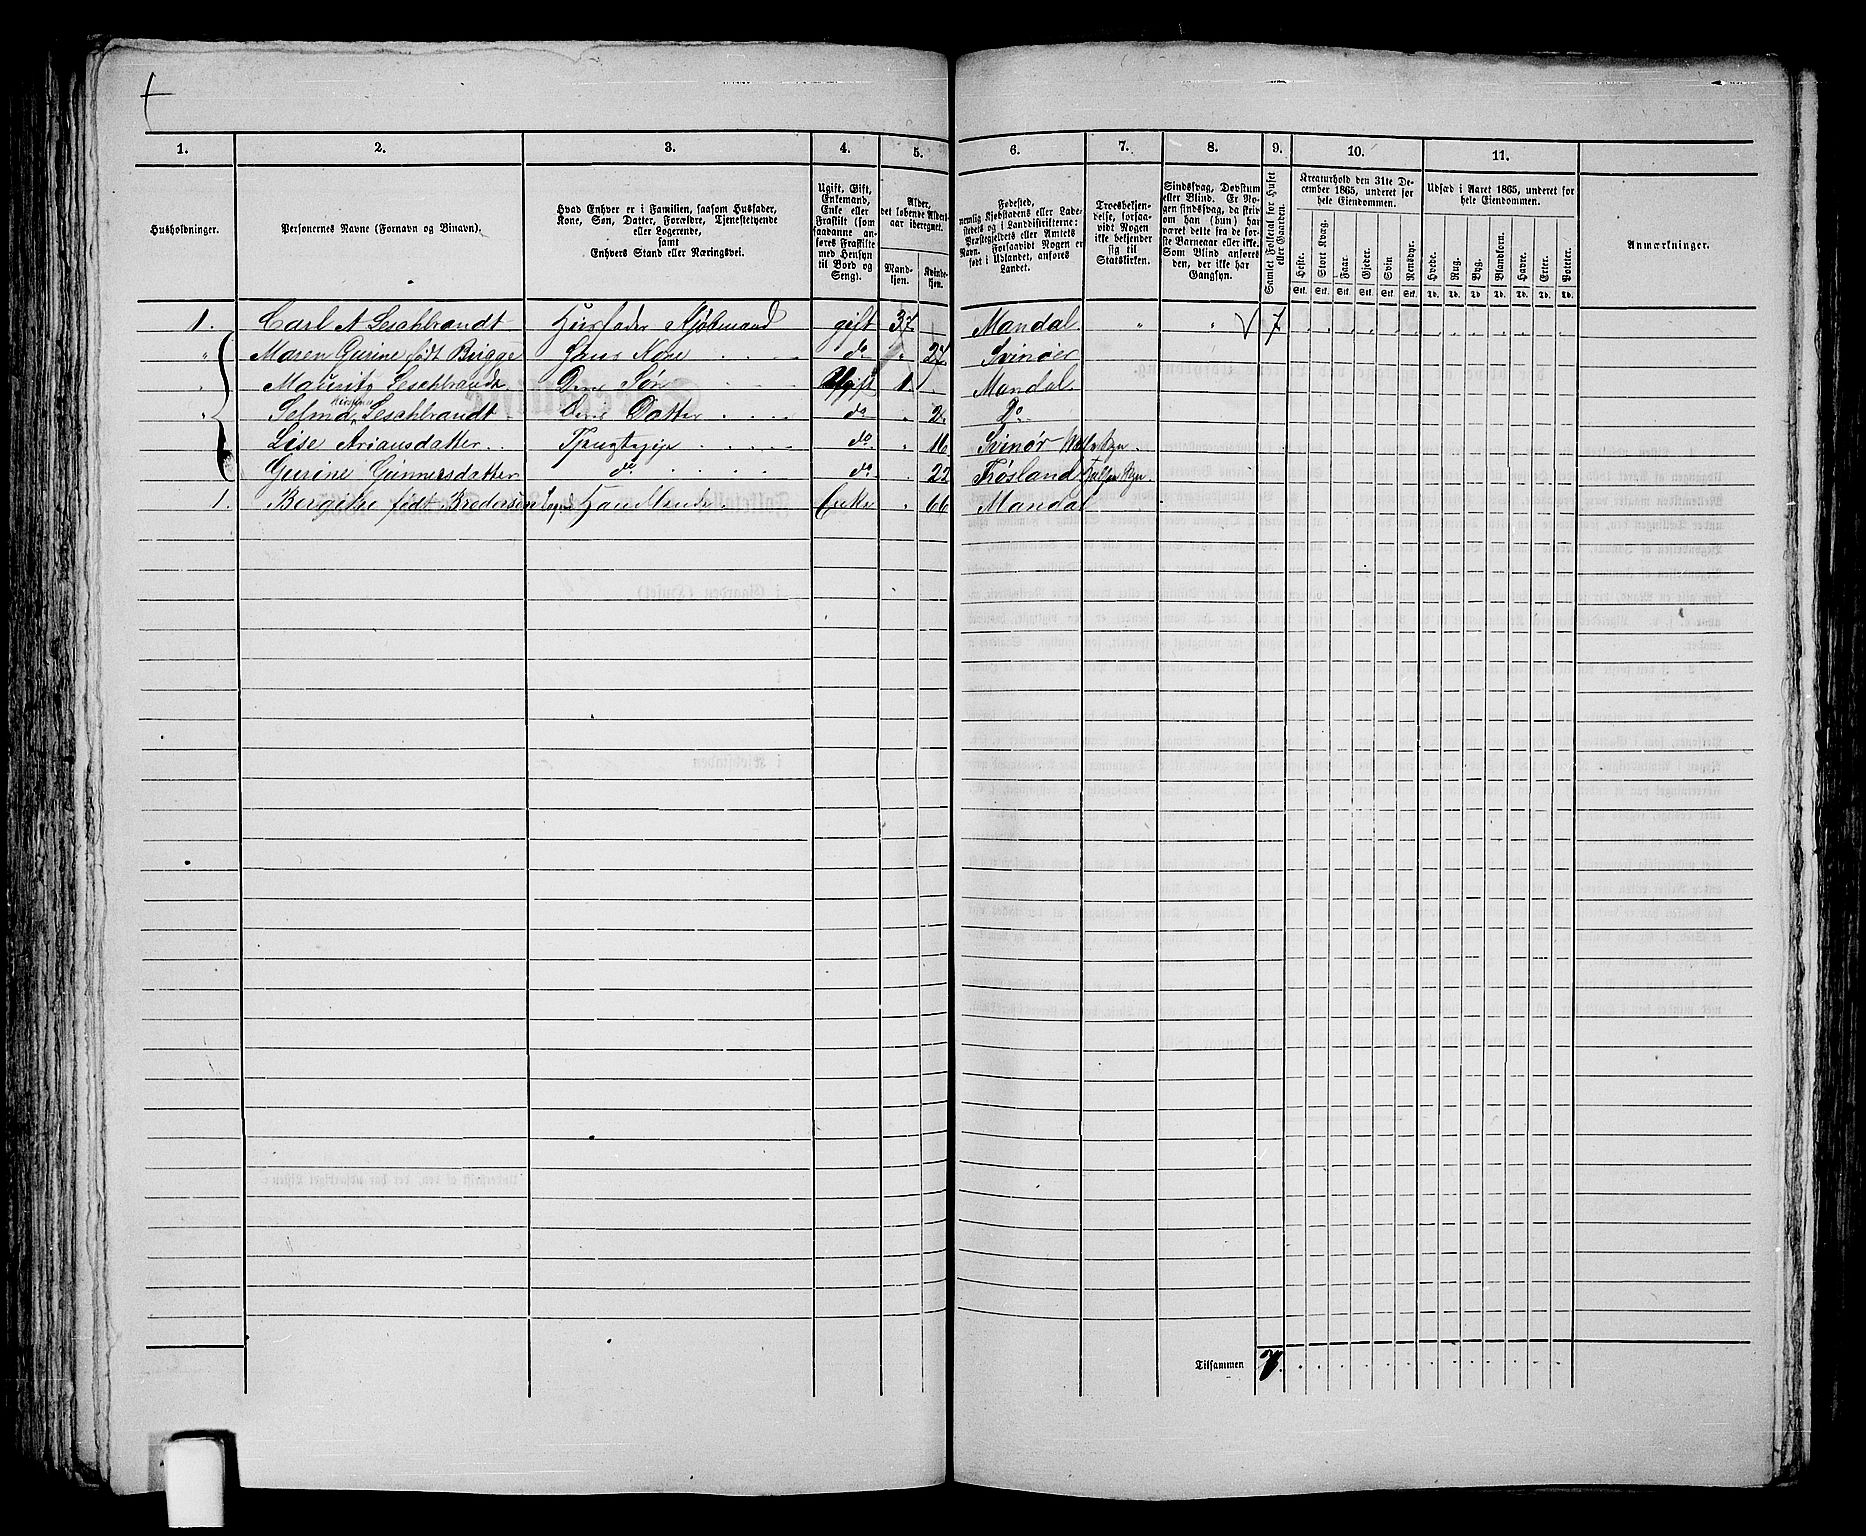 1. 2. 3. 4. 5. 6. 7. 8. 9. 10. 11.
Husholdninger.
Personernes Navne (Fornavn og Binavn).
Hvad Enhver er i Familien, saasom Husfader,
Kone, Søn, Datter, Forældre, Tjenestetyende
eller Logerende,
samt
Enhvers Stand eller Næringsvei.
Ugift, Gift,
Enkemand,
Enke eller
Fraskilt (som
saadanne an-
føres Fraskilte
med Hensyn
til Bord og
Seng).
Alder,
det løbende Alders-
aar iberegnet.
Mand-
kjøn.
Kvinde-
kjøn.
Fødested,
nemlig Kjøbstadens eller Lade-
stedets og i Landdistrikterne:
Præstegjeldets eller Amtets
Navn. Forsaavidt Nogen er
født i Udlandet, anføres
Landet.
Troesbekjen-
delse, forsaa-
vidt Nogen
ikke bekjender
sig til
Statskirken.
Sindssvag, Døvstum
eller Blind. Er No-
gen sindssvag, da skriv
om han (hun) har
været dette fra de før-
ste Barneaar eller ikke.
Som Blind anføres
den, der ikke har
Gangsyn.
Samlet Folketal for Huset
eller Gaarden.
Kreaturhold den 31te De-
cember 1865, underet for
hele Eiendommen.
Heste. Stort Kvæg. Faar. Gjeder. Svin. Rensdyr.
Stk. Stk. Stk. Stk. Stk. Stk.
Udsæd i Aaret 1865, underet for
hele Eiendommen.
Hvede. Rug. Byg. Blandkorn. Havre. Erter. Poteter.
Td. Td. Td. Td. Td. Td. Td.
Anmærkninger.
1. Carl A Leschbrandt Husfader Kjøbmand gift 37 Mandal " " 7
" Maren Gurine født Brigge Hans Kone do " 27 Svinøer
" Mauritz Leschbrandt Deres Søn Ugift 1 Mandal
" Selma Leschbrandt Deres Datter do " 2 Do
Lise Ariansdatter Tjenstepige do " 16 Svinør
Gurine Gunnersdatter do do " 22 Frøsland
1. Bergithe født Brodersen Handlende Enke " 66 Mandal
Tilsammen 7